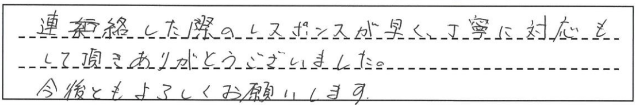 連絡した際のレスポンスが早く、丁寧に対応も
して頂きありがとうございました。
今後ともよろしくお願いします。